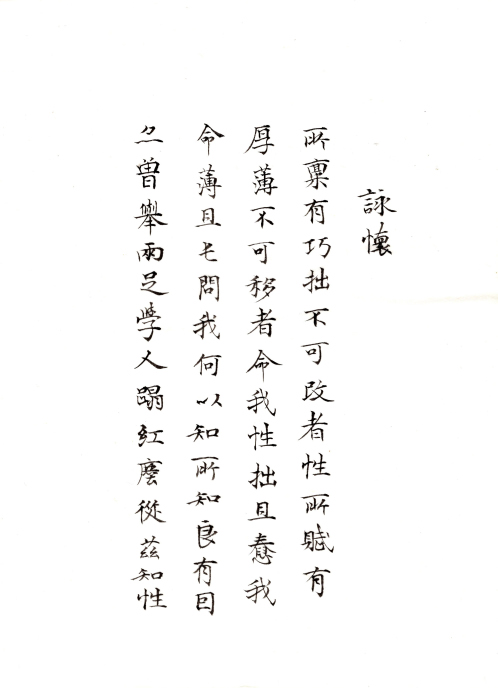 詠懷
所稟有巧拙不可改者性所賦有
厚薄不可移者命我性拙且惷我
命薄且屯問我何以知所知良有囙
亦曾舉兩足學人蹋紅塵從茲知性